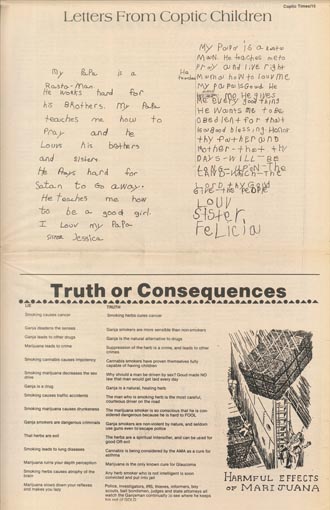 Coptic Times/15
Letters From Coptic Children
My PaPa is a
Rasta-Man.
He works hard for
his BRothers. My PaPa
teaches me how to
Pray and he
Louvs his bothers
and sisters.
He Prays hard for
Satan to Go away.
He teaches me how
to be a good girl.
I Louv my PaPa
Jessica
My PaPa is a
MaN. He teaches me to
Pray and live right
how to louv me
my papa is Good He
me He gives
Me every good thing
He Wants me to be
obedient for that
is a Good blessing. Honor
thy father and
Mother-that thy
DAYS-WILL-BE
LONG-UPON-The
LAND-Which-The
Lord thy God
Give-the PeoPle
Louv
Sister
FeLicia
Truth or Consequences
LIE
TRUTH
Smoking causes cancer
Smoking herbs cures cancer
Ganja disaters the senses
Ganja smokers are more sensible than non-smokers
Ganja leads to other drugs
Ganja is the natural alternative to drugs
Marijuana leads to crime
Suppression of the herb is a crime, and leads to other
crimes
Smoking cannabis causes impotency
Cannabis smokers have proven themselves fully
capable of having children
Smoking marijuana decreases the sex
drive
Why should a man be driven by sex?
law that man would get tied every day
Ganja is a drug
Ganja is a natural, healing herb
Smoking causes traffic accidents
The man who is smoking herb is the most careful,
courteous driver on the road
Smoking marijuana causes drunkeness
The marijuana smoker is so conscious that he is con-
sidered dangerous because he is hard to FOOL
Ganja smokers are dangerous criminals
Ganja smokers are non-violent by nature, and seldom
use guns even to escape police
That herbs are evil
The herbs are a spiritual intensifier, and can be used for
good OR evil
Smoking leads to lung diseases
Cannabis is being considered by the AMA as a cure for
asthma
Marijuana ruins your depth perception
Marijuana is the only known cure for Glaucoma
Smoking herbs causes atrophy of the
brain
Any herb smoker who is not intelligent is soon
convicted and put into jail
Marijuana slows down your reflexes
and makes you lazy
Police, investigators, IRS, thieves, informers, boy
scouts, bail bondsmen, judges and state attorneys all
watch the Ganjaman continually (to see where he keeps
HARMFUL EFFECTS
OF MARIJUANA